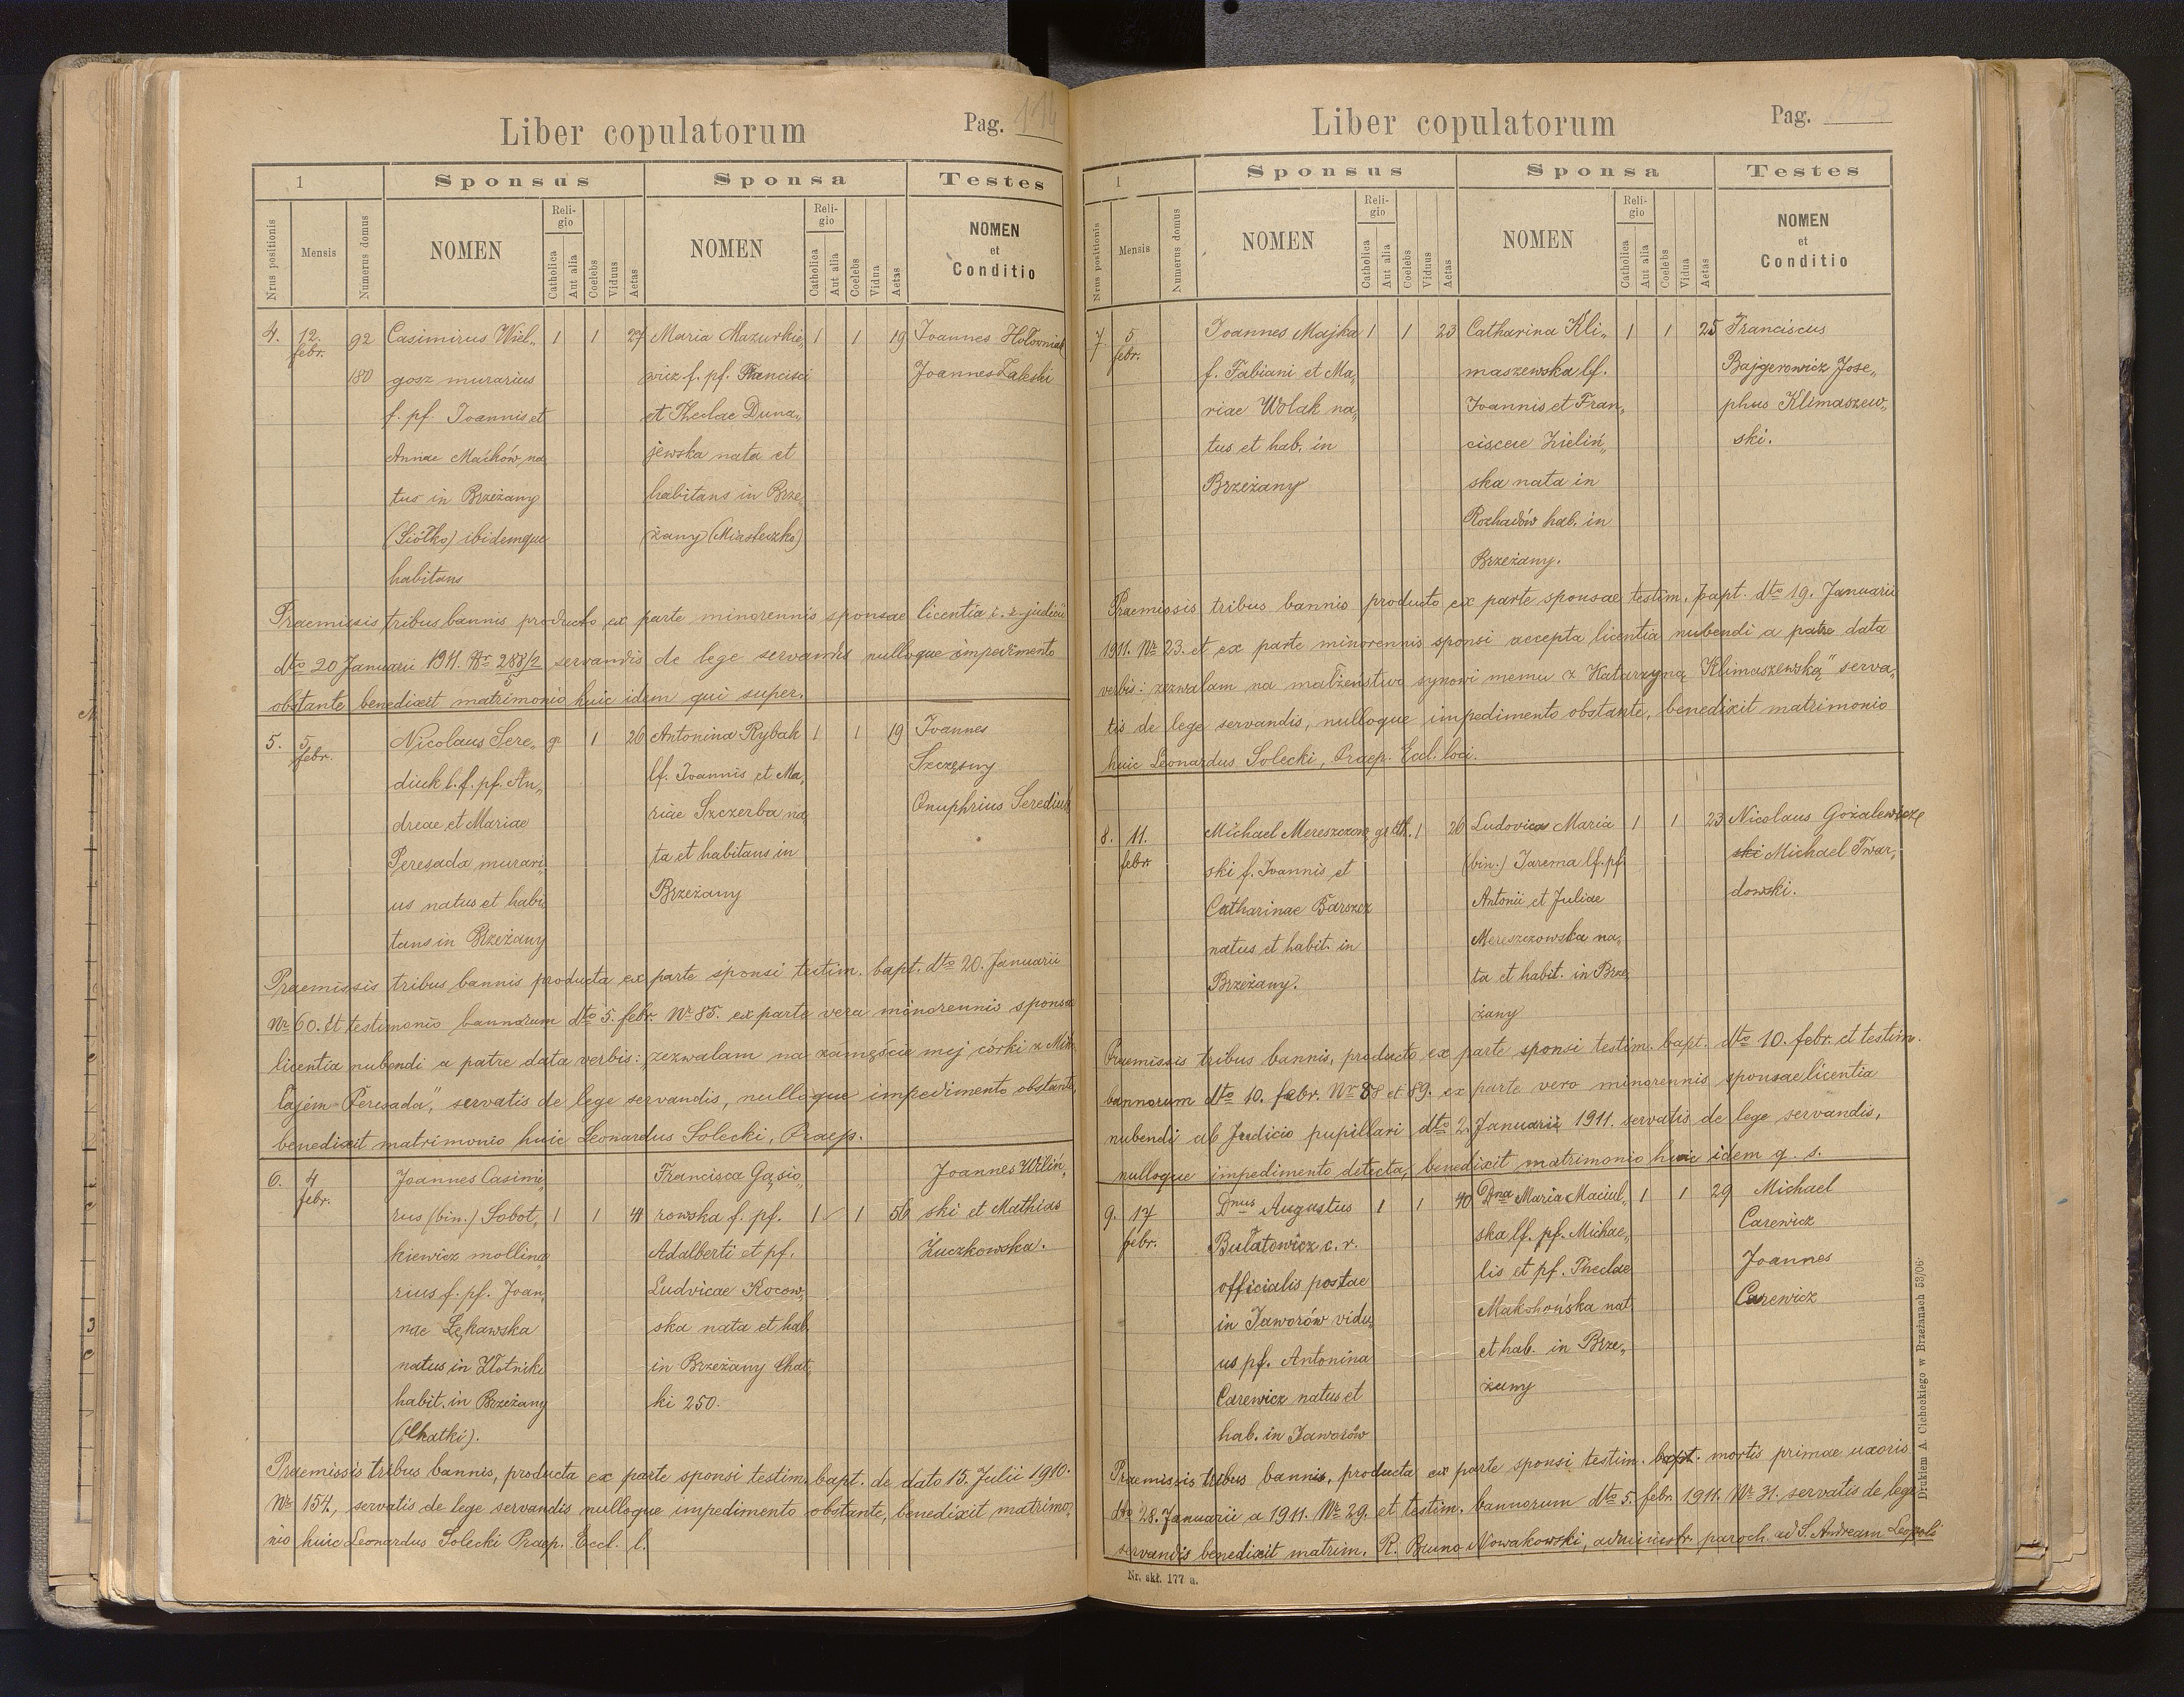 Liber copulatorum
Pag. 114
1
Sponsus
Sponsa
Testes
Nrus positionis
Mensis
Numerus domus
NOMEN
Religio
Catholica
Aut alia
Coelebs
Viduus
Aetas
NOMEN
Religio
Catholica
Aut alia
Coelebs
Vidua
Aetas
NOMEN
et
Conditio
4. 12. febr. 92 Casimirus Wiel„ 1 1 27 Maria Mazurkie„ 1 1 19 Joannes Hołowniak
180 gosz murarius wicz f. pf. Francisci Joannes Zaleski
f. pf. Joannis et et Theclae Duna„
Annae Maćków na jewska nata et
tus in Brzeżany habitans in Brze„
(Siółko) ibidemque żany (Miasteczko)
habitans
Praemissis tribus bannis producto ex parte minorennis sponsae licentia c. r. judicii
dto 20 Januarii 1911. Nr 288/2 servandis de lege servandis nulloque impedimento
5
obstante benedixit matrimonio huic idem qui super.
5. 5 febr. Nicolaus Sere„ gr 1 26 Antonina Rybak 1 1 19 Joannes
diuk l. f. pf. An„ lf. Joannis et Ma„ Szczęsny
dreae et Mariae riae Szczerba na„ Onuphrius Serediuk
Peresada murari ta et habitans in
us natus et habi Brzeżany
tans in Brzeżany
Praemissis tribus bannis producta ex parte sponsi testim. bapt. dto 20. Januarii
Nr 60. et testimonio bannorum dto 5. febr. Nr 85. ex parte vera minorennis sponsae
licentia nubendi a patre data verbis: „zezwalam na zamęście mej córki z Miko„
łajem Peresada", servatis de lege servandis, nulloque impedimento obstante,
benedixit matrimonio huic Leonardus Solecki, Praep.
6. 4 febr. Joannes Casimi„ Francisca Gąsio„ Joannes Wiliń„
rus (bin.) Sobot„ 1 1 41 rowska f. pf. 1 1 56 ski et Mathias
kiewicz mollina Adalberti et pf. Żuczkowska.
rius f. pf. Joan„ Ludvicae Kocow„
nae Łękawska ska nata et hab.
natus in Złotniki in Brzeżany Chat„
habit. in Brzeżany ki 250.
(Chatki).
Praemissis tribus bannis, producta ex parte sponsi testim. bapt. de dato 15. Julii 1910.
Nr 154, servatis de lege servandis nulloque impedimento obstante, benedixit matrimo„
nio huic Leonardus Solecki Praep. Eccl. l.
Liber copulatorum
Pag. 115
1
Sponsus
Sponsa
Testes
Nrus positionis
Mensis
Numerus domus
NOMEN
Religio
Catholica
Aut alia
Coelebs
Viduus
Aetas
NOMEN
Religio
Catholica
Aut alia
Coelebs
Vidua
Aetas
NOMEN
et
Conditio
7. 5 febr. Joannes Majka 1 1 23 Catharina Kli„ 1 1 25 Franciscus
f. Fabiani et Ma„ maszewska lf. Bajgerowicz Jose„
riae Wolak na„ Joannis et Fran„ phus Klimaszew„
tus et hab. in ciscae Zieliń„ ski.
Brzeżany ska nata in
Rozhadów hab. in
Brzeżany.
Praemissis tribus bannis producto ex parte sponsae testim. bapt. dto 19. Januarii
1911. Nr 23. et ex parte minorennis sponsi accepta licentia nubendi a patre data
verbis: zezwalam na małżeństwo synowi memu z Katarzyną Klimaszewską" serva„
tis de lege servandis, nulloque impedimento obstante, benedixit matrimonio
huic Leonardus Solecki, Praep. Eccl. loci.
8. 11. febr. Michael Mereszczow„ gr cth. 1 26 Ludovica Maria 1 1 23 Nicolaus Gożalewicz
ski f. Joannis et (bin.) Jarema lf. pf. ski Michael Twar„
Catharinae Barszcz Antonii et Juliae dowski.
natus et habit. in Mereszczowska na„
Brzeżany. ta et habit. in Brze„
żany
Praemissis tribus bannis, producto ex parte sponsi testim. bapt. dto 10. febr. et testim.
bannorum dto 10. febr. Nr 88 et 89. ex parte vero minorennis sponsae licentia
nubendi ab Judicio pupillari dto 2. Januarii 1911. servatis de lege servandis,
nulloque impedimento detecta, benedixit matrimonio huic idem q. s.
9. 17 febr. Dnus Augustus 1 1 40 Dna Maria Maciul„ 1 1 29 Michael
Bułatowicz c. r. ska lf. pf. Michae„ Carewicz
officialis postae lis et pf. Theclae Joannes
in Jaworów vidu„ Makohońska nat. Carewicz
us pf. Antonina et hab. in Brze„
Carewicz natus et żany
hab. in Jaworów
Praemissis tribus bannis, producta ex parte sponsi testim. bapt. mortis primae uxoris
dto 28. Januarii a 1911. Nr 29. et testim. bannorum dto 5. febr. 1911. Nr 31. servatis de lege
servandis benedixit matrim. R. Bruno Nowakowski, administr. paroch. ad S. Andream Leopoli
Nr. skł. 177 a.
Drukiem A. Cichockiego w Brzeżanach 53/06.